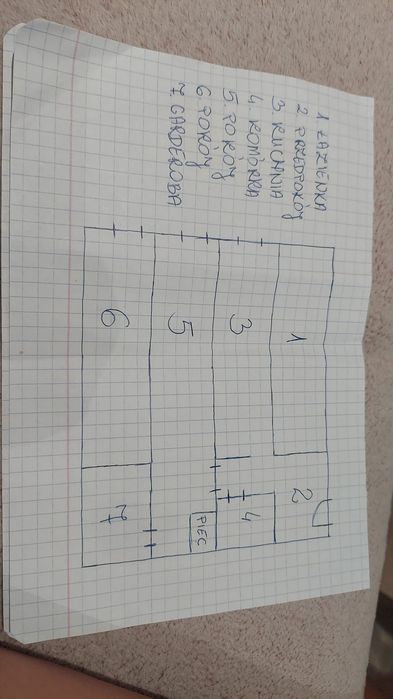 1 ŁAZIENKA
2. PRZEDPOKÓJ
3 KUCHNIA
4. KOMÓRKA
5. POKÓJ
6. POKÓJ
7. GARDEROBA
1
2
3
4
PIEC
5
6
7